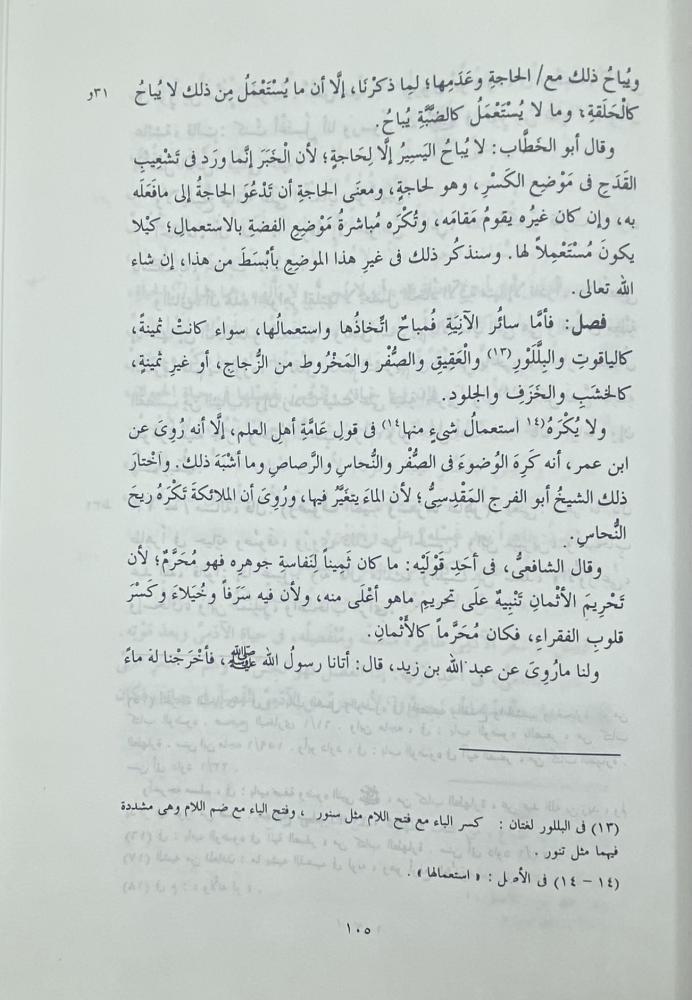 ويُباحُ ذلك مع/ الحاجةِ وعَدَمِها؛ لمِا ذكرْنَا، إلَّا أن ما يُسْتَعْمَلُ مِن ذلك لا يُباحُ ٣١و
كالْحَلَقةِ؛ وما لا يُسْتَعْمَلُ كالضَّبَّةِ يُباحُ.
وقال أبو الخَطَّاب: لا يُباحُ اليَسِيرُ إلَّا لِحَاجةٍ؛ لأن الْخَبَرَ إنَّما ورَد فى تَشْعِيبِ
القَدَحِ فى مَوْضِعِ الكَسْرِ، وهو لحاجةٍ، ومعنَى الحاجةِ أن تَدْعُوَ الحاجةُ إلى مافَعَلَه
به، وإن كان غيرُه يقومُ مَقامَه، وتُكْرَه مُباشرةُ مَوْضِعِ الفضةِ بالاستعمالِ؛ كيْلا
يكونَ مُسْتَعْمِلاً لها. وسنذكُر ذلك فى غيرِ هذا الموضِعِ بأبْسَطَ من هذا، إن شاء
الله تعالى.
فصل: فأمَّا سائُر الآنِيَةِ فُمباحٌ اتِّخاذُها واستعمالُها، سواء كانتْ ثمينةً،
كالياقوتِ والبِلَّلَوْرِ(١٣) والْعَقِيقِ والصُّفْر والمَخْرُوط من الزُّجاجِ، أو غيرِ ثمينةٍ،
كالخشَبِ والخَزَفِ والجلود.
ولا يُكْرَهُ(١٤ استعمالُ شىءٍ منها١٤) فى قولِ عَامَّةِ أهلِ العلم، إلَّا أنه رُوِىَ عن
ابن عمر، أنه كَرِهَ الوُضوءَ فى الصُّفْر والنُّحاسِ والرَّصاصِ وما أشْبَهَ ذلك. واخْتارَ
ذلك الشيخُ أبو الفرج المَقْدِسِىُّ؛ لأن الماءَ يتغيَّرُ فيها، ورُوِىَ أن الملائكةَ تَكْرَهُ ريحَ
النُّحاسِ.
وقال الشافعىُّ، فى أحَدِ قَوْلَيْه: ما كان ثَمِيناً لِنَفاسةِ جوهرِه فهو مُحَرَّمٌ؛ لأن
تَحْرِيمَ الأثْمانِ تَنْبِيهٌ علَى تحريمِ ماهو أغْلَى منه، ولأن فيه سَرَفاً وخُيَلاءَ وكَسْرَ
قلوبِ الفقراءِ، فكان مُحَرَّماً كالأَثْمانِ.
ولنا مارُوِىَ عن عبد الله بن زيد، قال: أتانا رسولُ الله ﷺ، فأخْرَجْنا له ماءً
(١٣) فى البللور لغتان : كسر الباء مع فتح اللام مثل سنور ، وفتح الباء مع ضم اللام وهى مشددة
فيهما مثل تنور .
(١٤ – ١٤) فى الأصل : « استعمالها » .
١٠٥